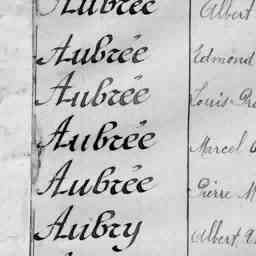 Aubrée Albert
Aubrée Edmond
Aubrée Louis
Aubrée Marcel
Aubrée Pierre M
Aubry Albert